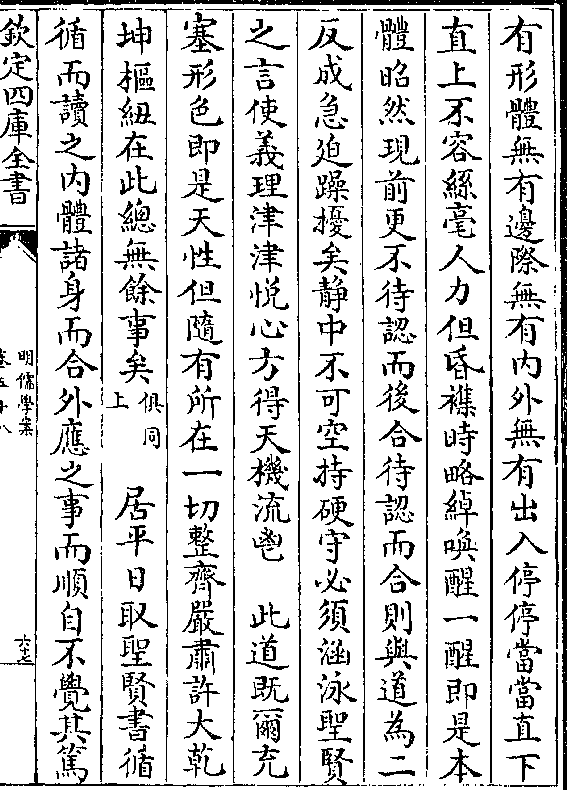 有形體無有邊際無有内外無有出入停停當當直下
直上不容絲毫人力但昏襍時略綽喚醒一醒即是本
體昭然現前更不待認而後合待認而合則與道為二
反成急迫躁擾矣静中不可空持硬守必須涵泳聖賢
之言使義理津津悦心方得天機流鬯　此道既爾充
塞形色即是天性但隨有所在一切整齊嚴肅許大乾
坤樞紐在此總無餘事矣俱同上　居平日取聖賢書循
循而讀之内體諸身而合外應之事而順自不覺其篤
欽定四庫全書
明儒學案